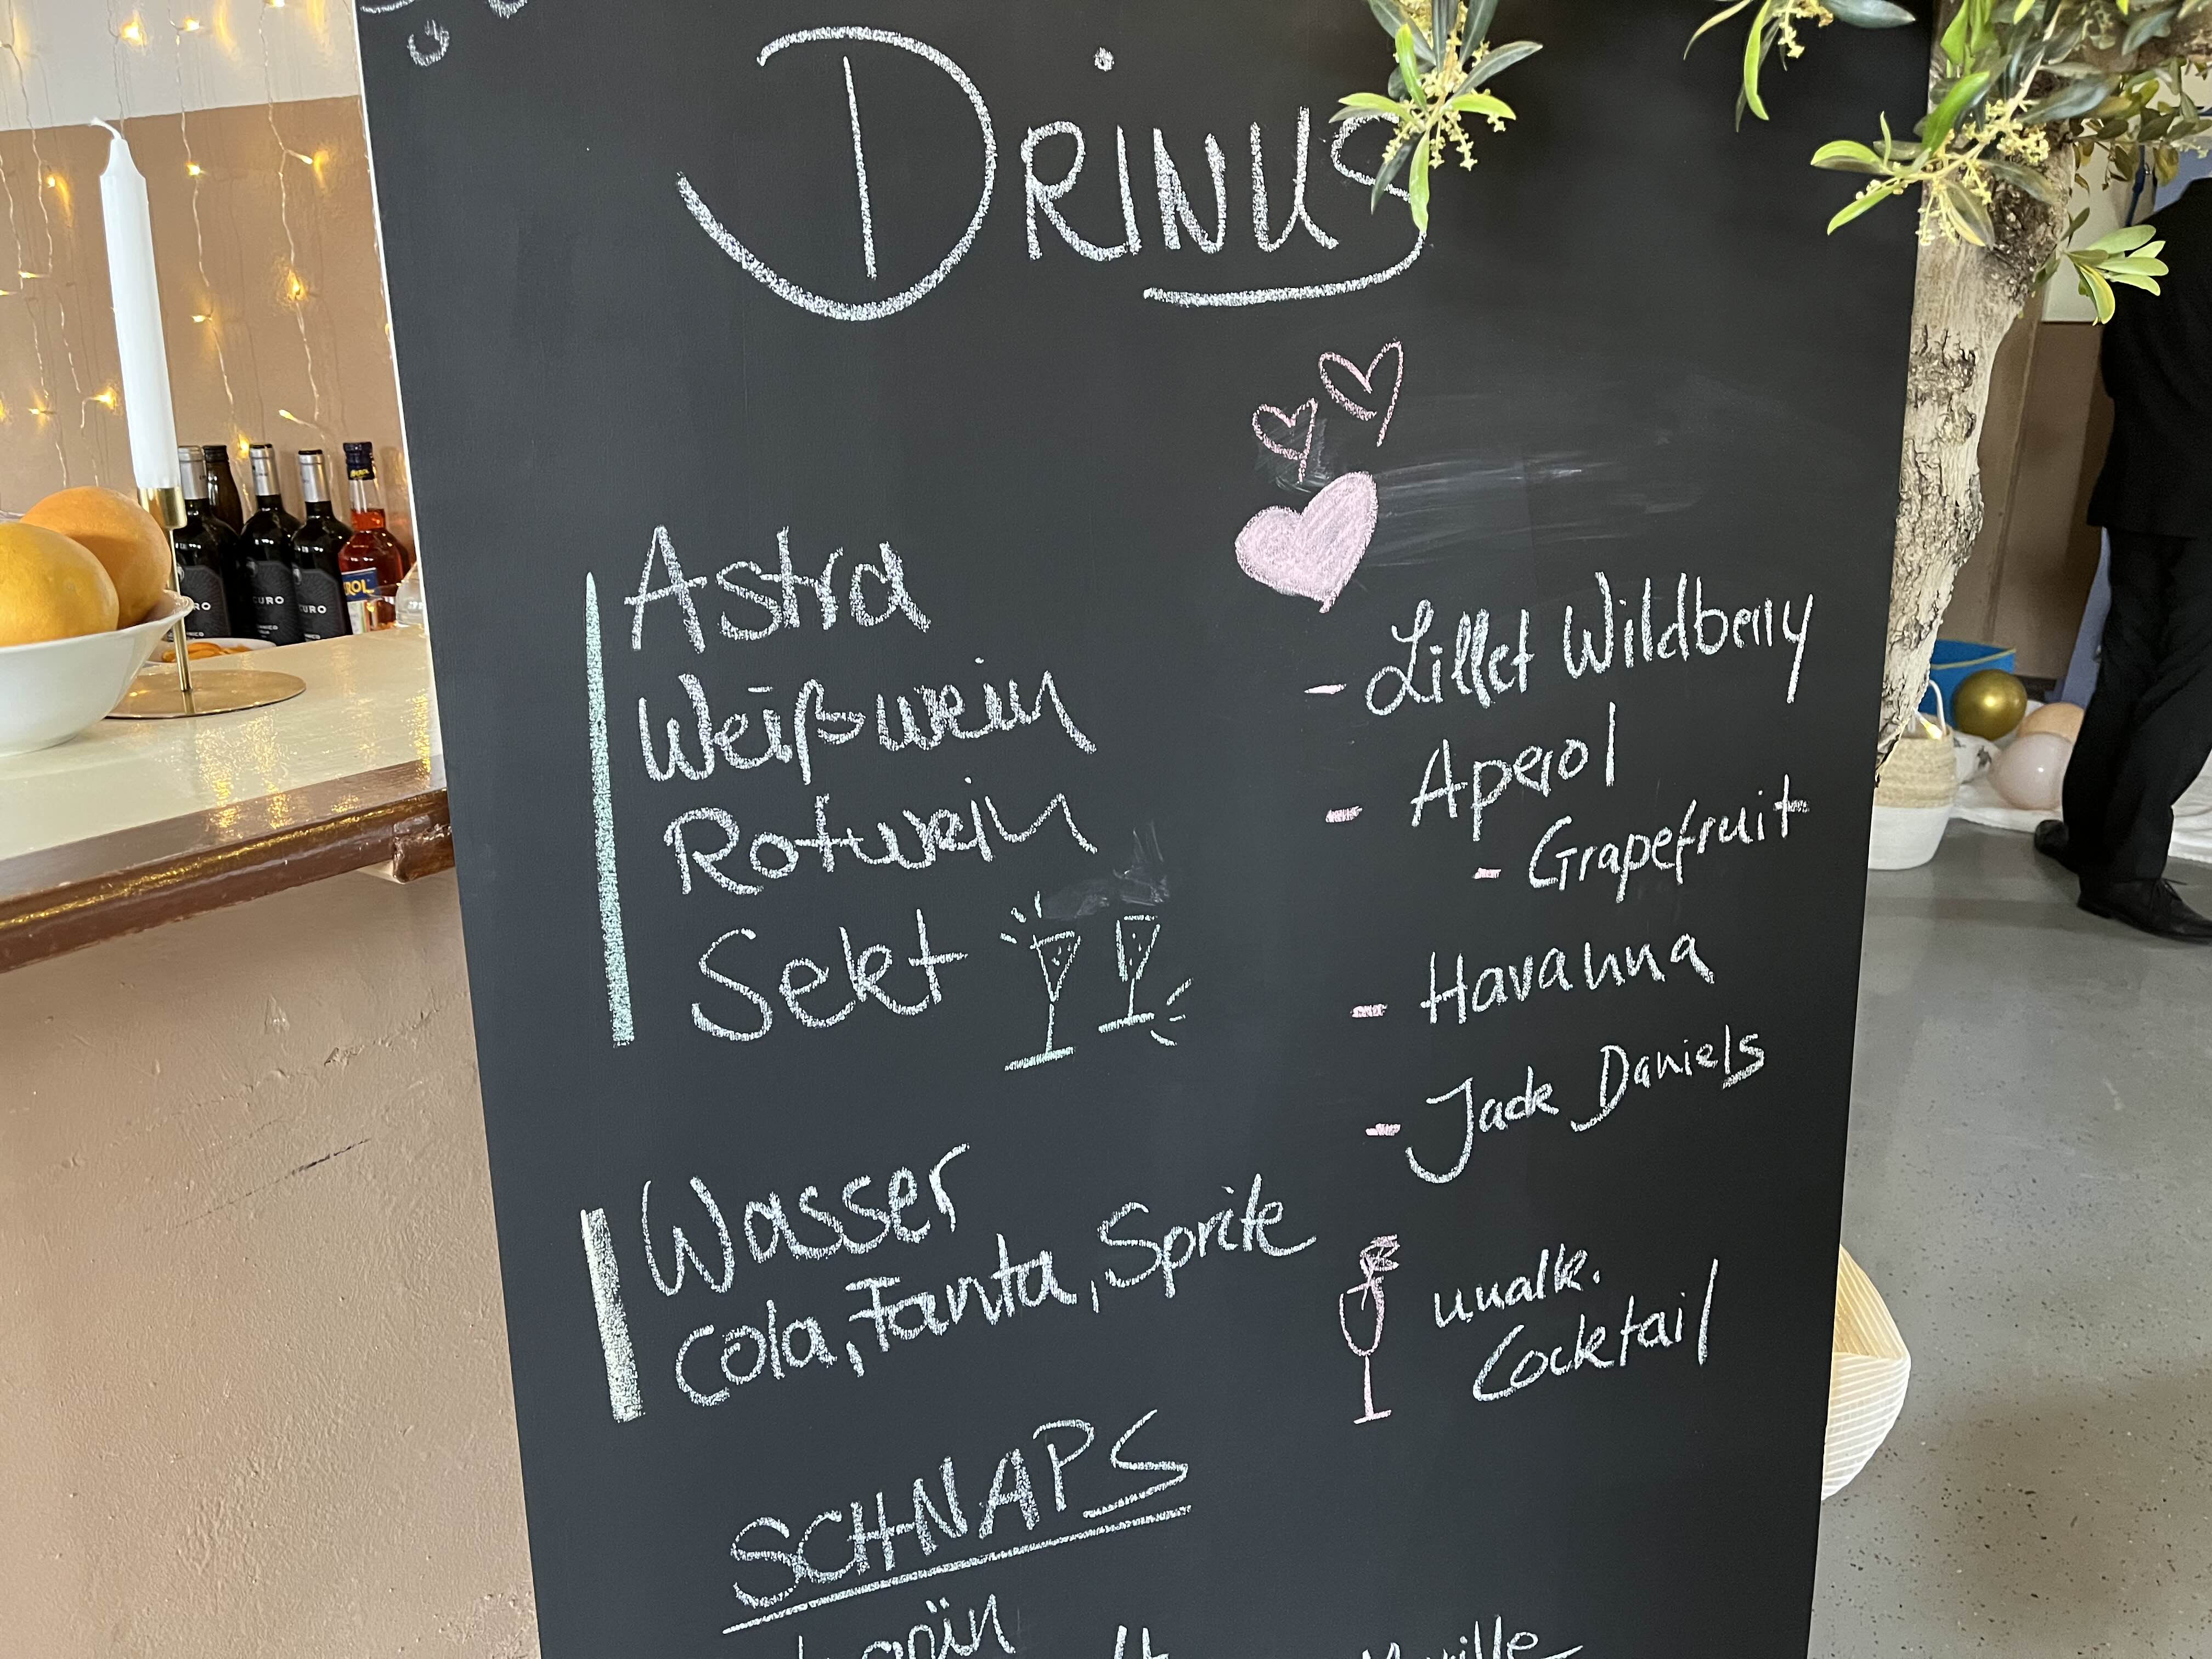 DRINKS
Astra
Weißwein
Rotwein
Sekt
Wasser
Cola, Fanta, Sprite
- Lillet Wildberry
- Aperol
- Grapefruit
- Havanna
- Jack Daniels
unalk.
Cocktail
SCHNAPS
CURO